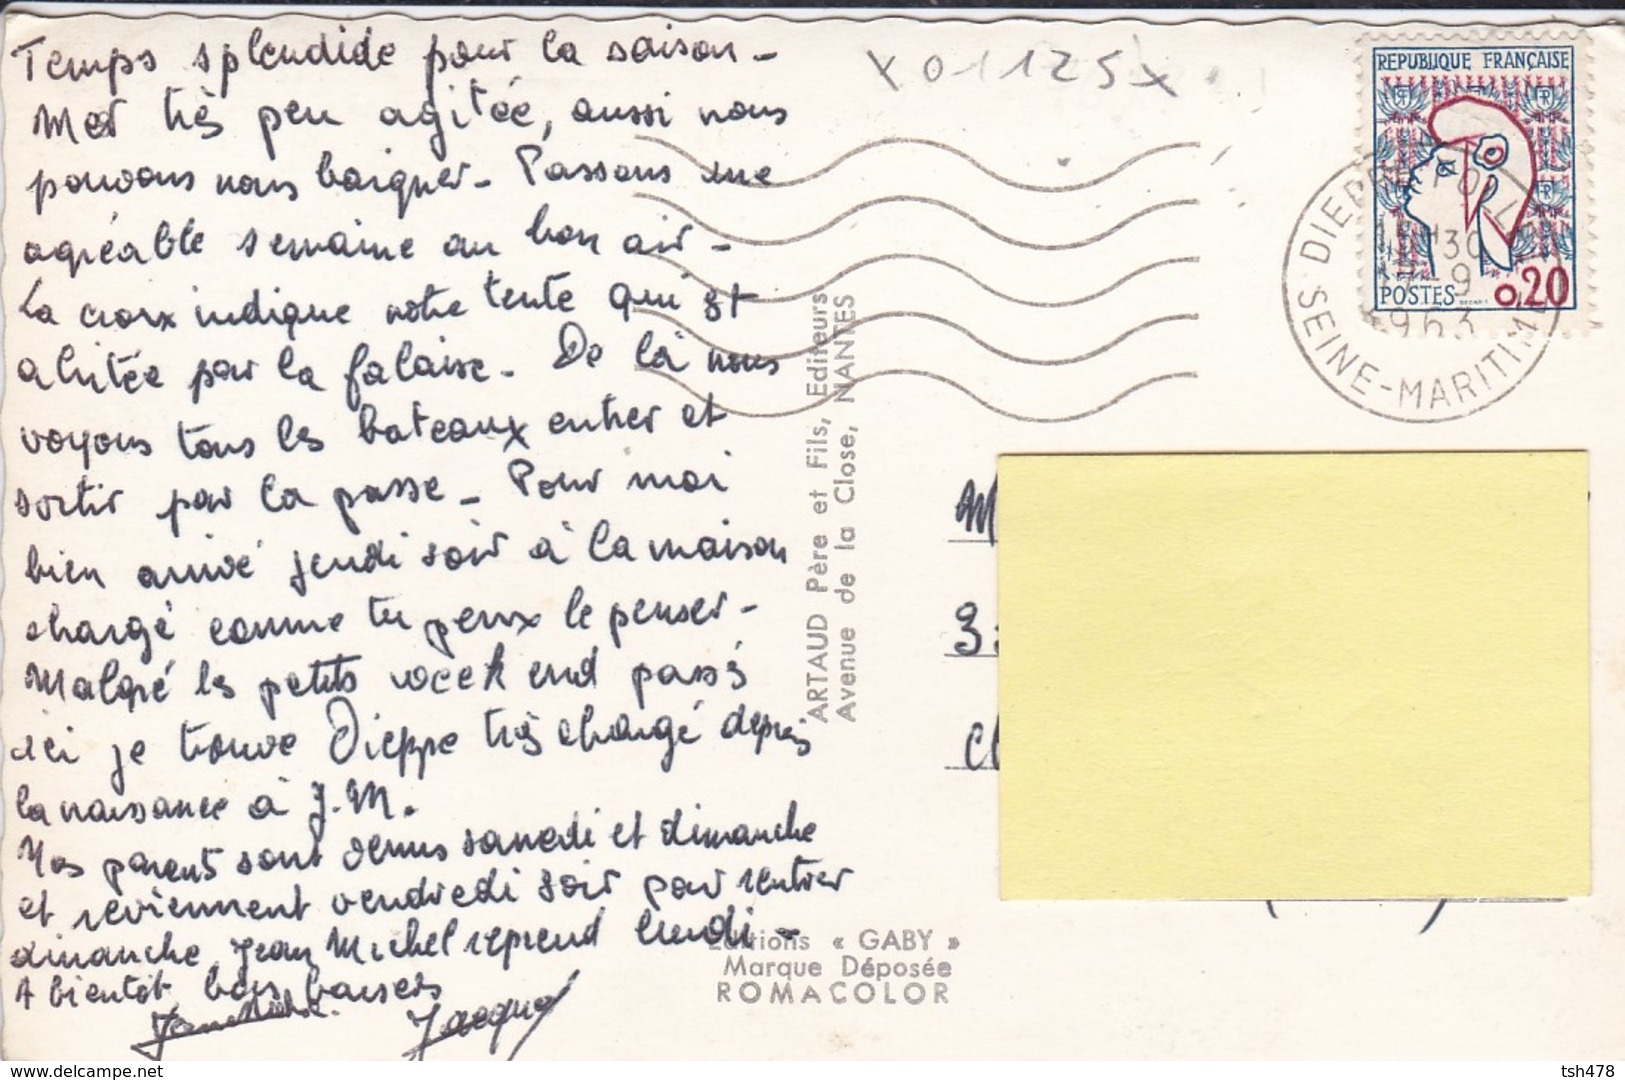 Temps splendide pour la saison -
Mer très peu agitée, aussi nous
pouvons nous baigner - Passons une
agréable semaine au bon air -
La croix indique notre tente qui est
abritée par la falaise - De là nous
voyons tous les bateaux entrer et
sortir par la passe - Pour moi
bien arrivé jeudi soir à la maison
chargé comme tu peux le penser -
Malgré les petits week end passés
ici je trouve Dieppe très changé depuis
la naissance à J.M.
Nos parents sont venus samedi et dimanche
et reviennent vendredi soir pour rentrer
dimanche. Jean Michel reprend lundi -
A bientôt bons baisers
Jacques
X 01125 x
REPUBLIQUE FRANÇAISE
POSTES 0,20
DIEPPE POLLET
30
9
1963
SEINE-MARITIME
ARTAUD Père et Fils, Editeurs
Avenue de la Close, NANTES
M
Editions « GABY »
Marque Déposée
ROMACOLOR
www.delcampe.net
tsh478